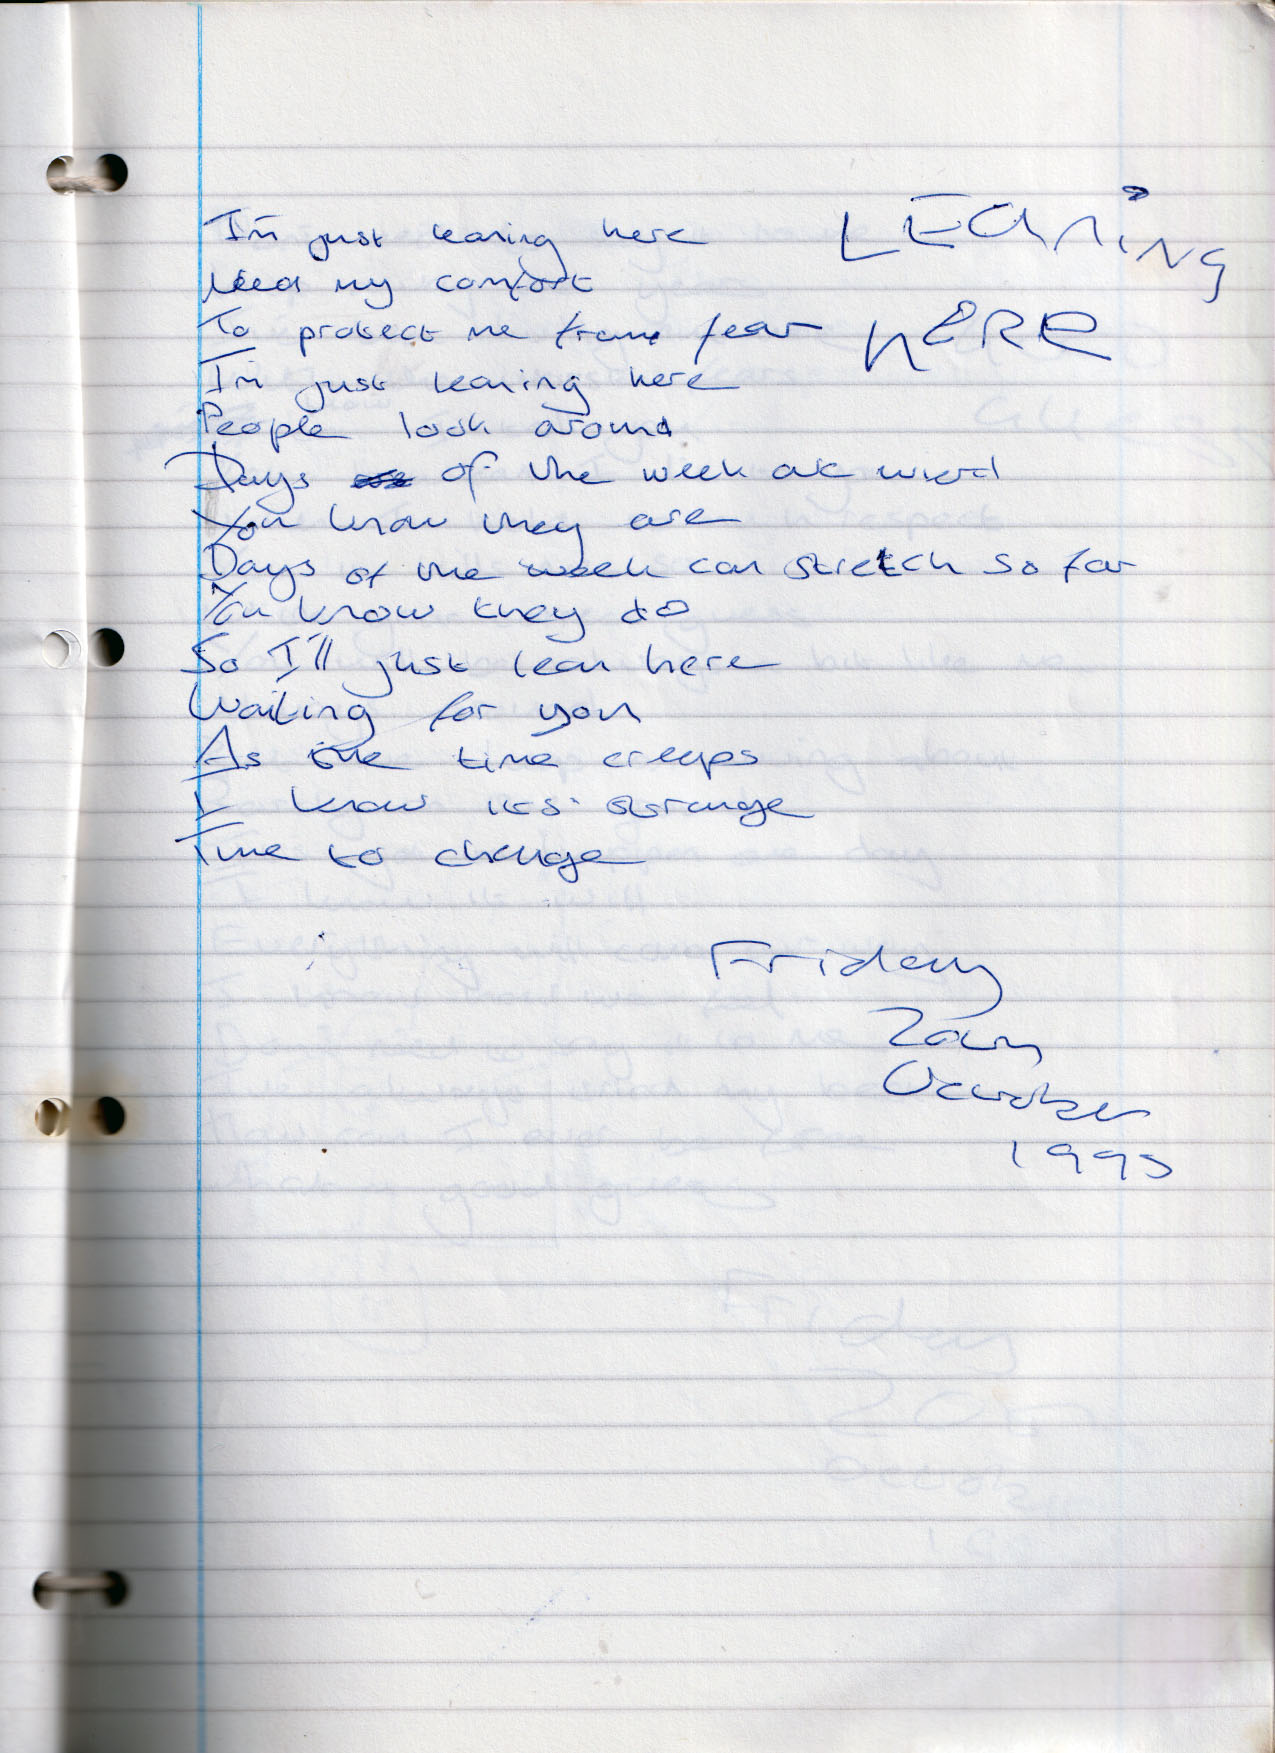 LEANING
HERE
I'm just leaning here
Need my comfort
To protect me from fear
I'm just leaning here
People look around
Days of the week are wierd
You know they are
Days of the week can stretch so far
You know they do
So I'll just lean here
Waiting for you
As the time creeps
I know its strange
Time to change
Friday
20th
October
1995